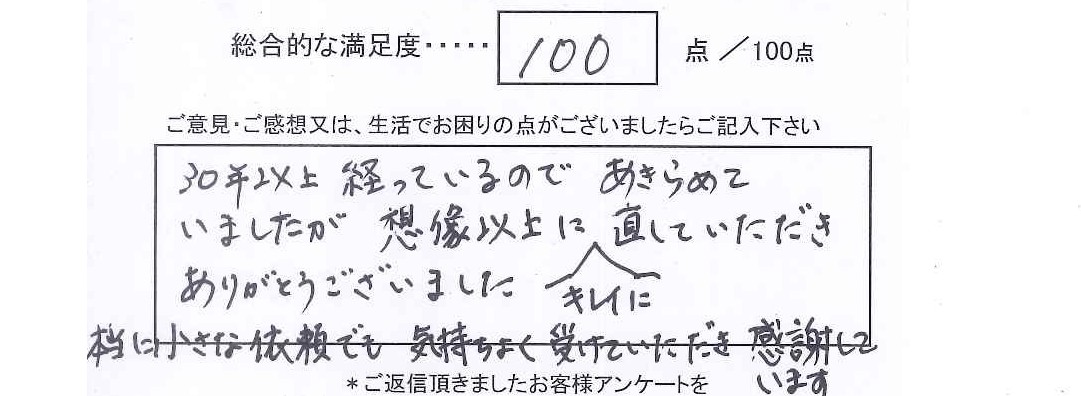 総合的な満足度・・・・・ 100 点 ／100点
ご意見・ご感想又は、生活でお困りの点がございましたらご記入下さい
30年以上 経っているので あきらめて
いましたが 想像以上に 直していただき
ありがとうございました キレイに
本当に小さな依頼でも 気持ちよく受けていただき 感謝して
います
＊ご返信頂きましたお客様アンケートを